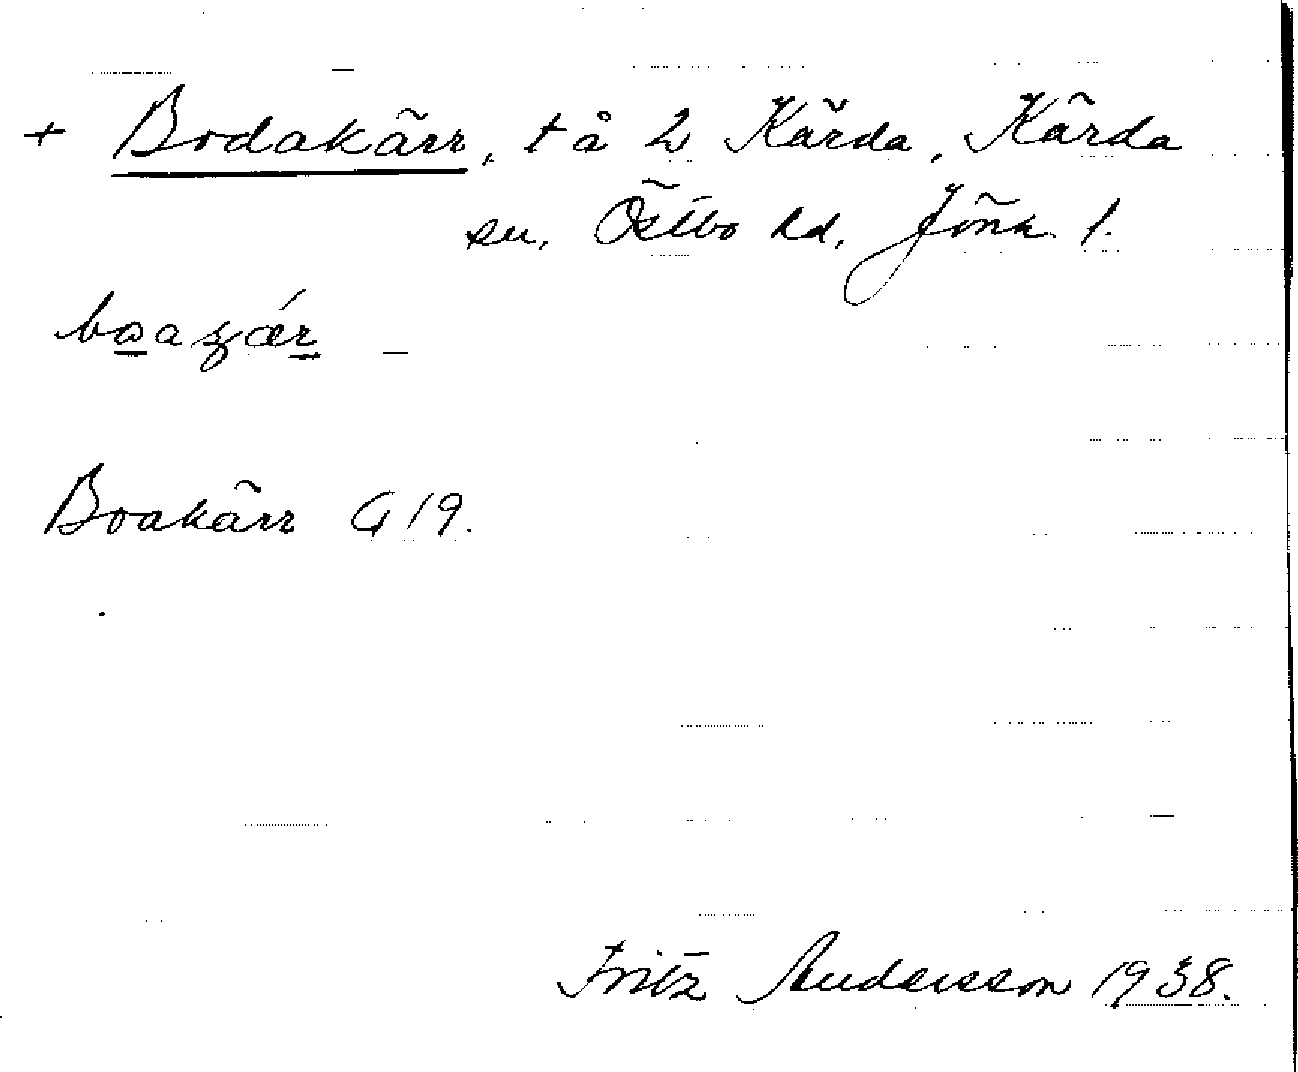 + Bodakärr, t å 2 Kärda, Kärda
sn, Östbo hd, Jönk l.
Boakärr G 19.
Fritz Andersson 1938.